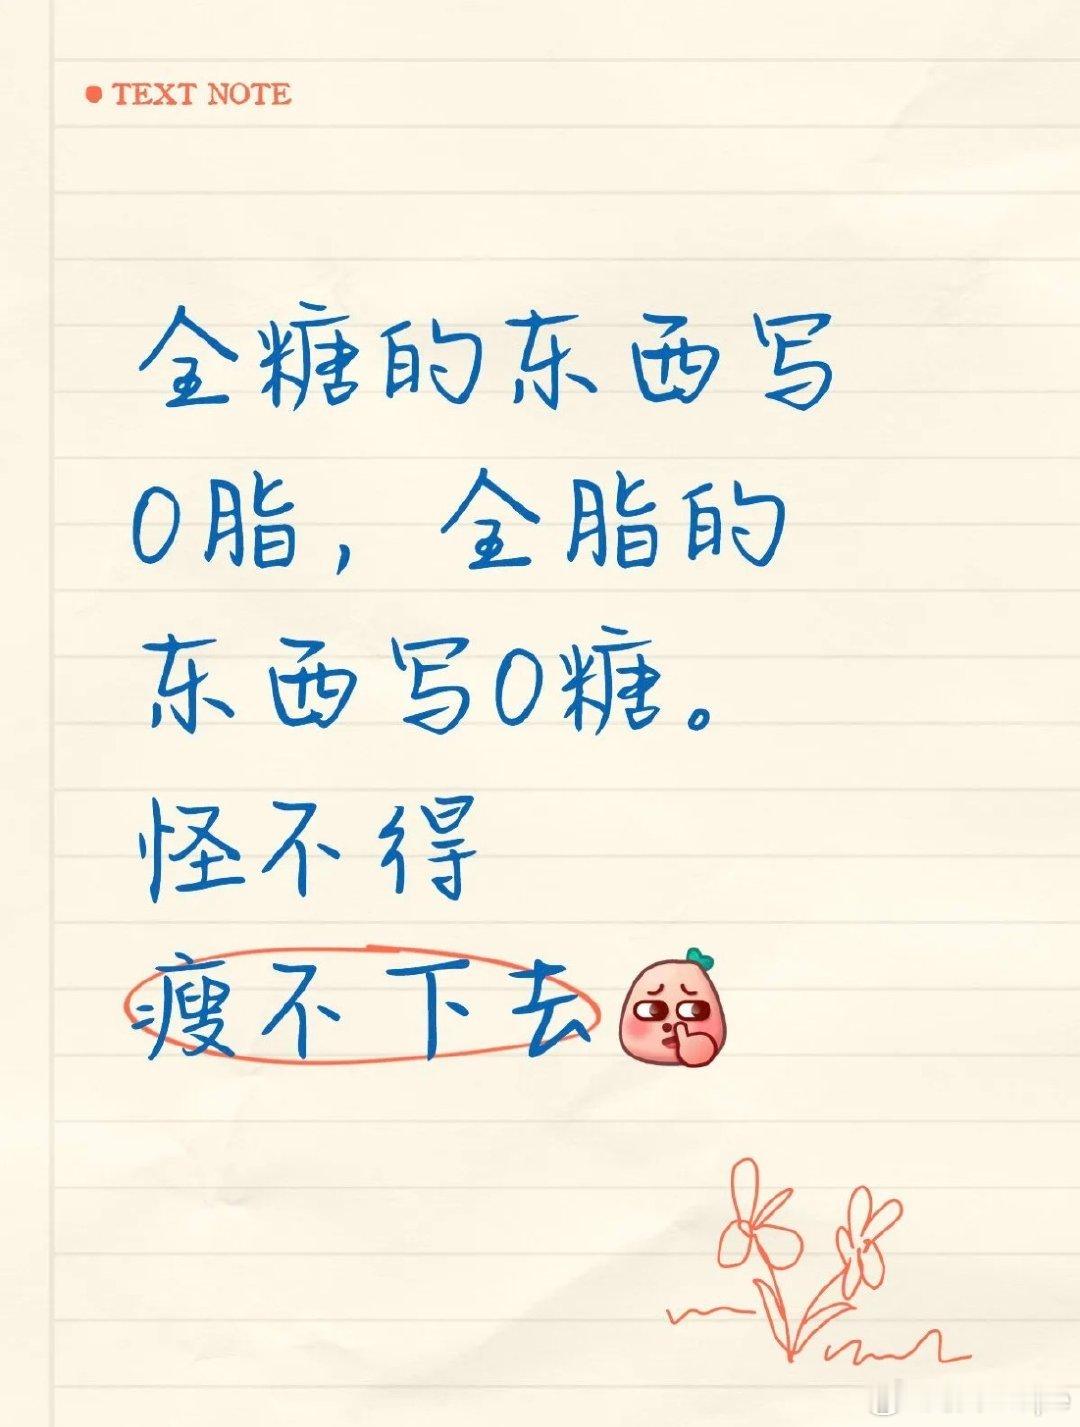 TEXT NOTE
全糖的东西写
0脂，全脂的
东西写0糖。
怪不得
瘦不下去